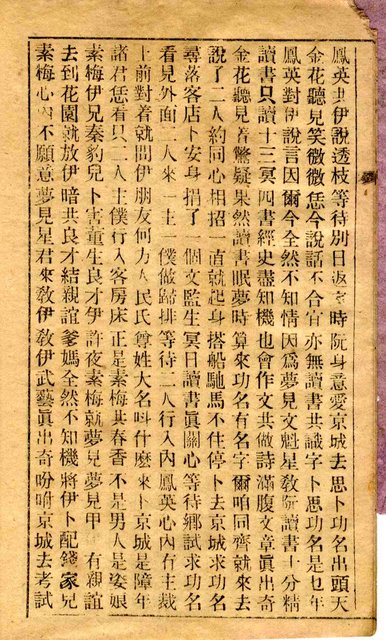 鳳英共伊說透枝等待別日返時阮身意愛京城去思卜功名出頭天
金花聽見笑微微恁今說話不合宜亦無讀書共識字卜思功名是乜年
鳳英對伊說言因爾今全然不知情因爲夢見文魁星敎阮讀書十分精
讀書只讀十三冥四書經史盡知機也會作文共做詩滿腹文章眞出奇
金花聽見着驚疑果然讀書眠夢時算來功名有名字爾咱同齊就來去
說了二人約同心相招一直就起身搭船馳馬不停卜去京城求功名
尋落客店卜安身捐了一個文監生冥日讀書眞關心等待鄉試求功名
看見外面二人來一主一僕做歸排等待二人行入內鳳英心內有主裁
上前對着就問伊朋友何方人民氏尊姓大名呌什麽來卜京城是障年
諸君恁看只二人主僕行入客房床正是素梅共春香不是男人是姿娘
素梅伊兄秦豹兒卜害董生良才伊許夜素梅就夢見夢見甲有親誼
去到花園就放伊暗共良才結親誼爹媽全然不知機將伊卜配錢家兒
素梅心內不願意夢見星君來敎伊敎伊武藝眞出奇吩咐京城去考試